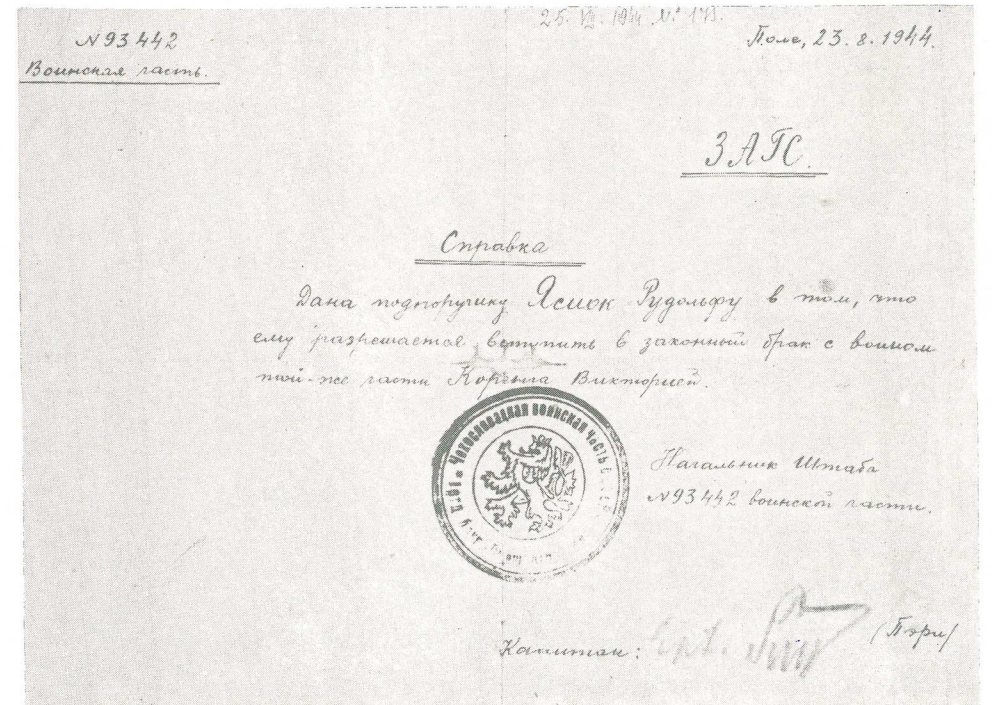 25. VIII. 1944 № 173.
№93442
Воинская часть.
Поле, 23. 8. 1944.
ЗАГС.
Справка
Дана подпоручику Ясиок Рудольфу в том, что
ему разрешается вступить в законный брак с воином
той-же части Корсынга Викторией.
Чехословацкая воинская часть в СССР
Начальник Штаба
№93442 воинской части.
Капитан:
/Пэри/